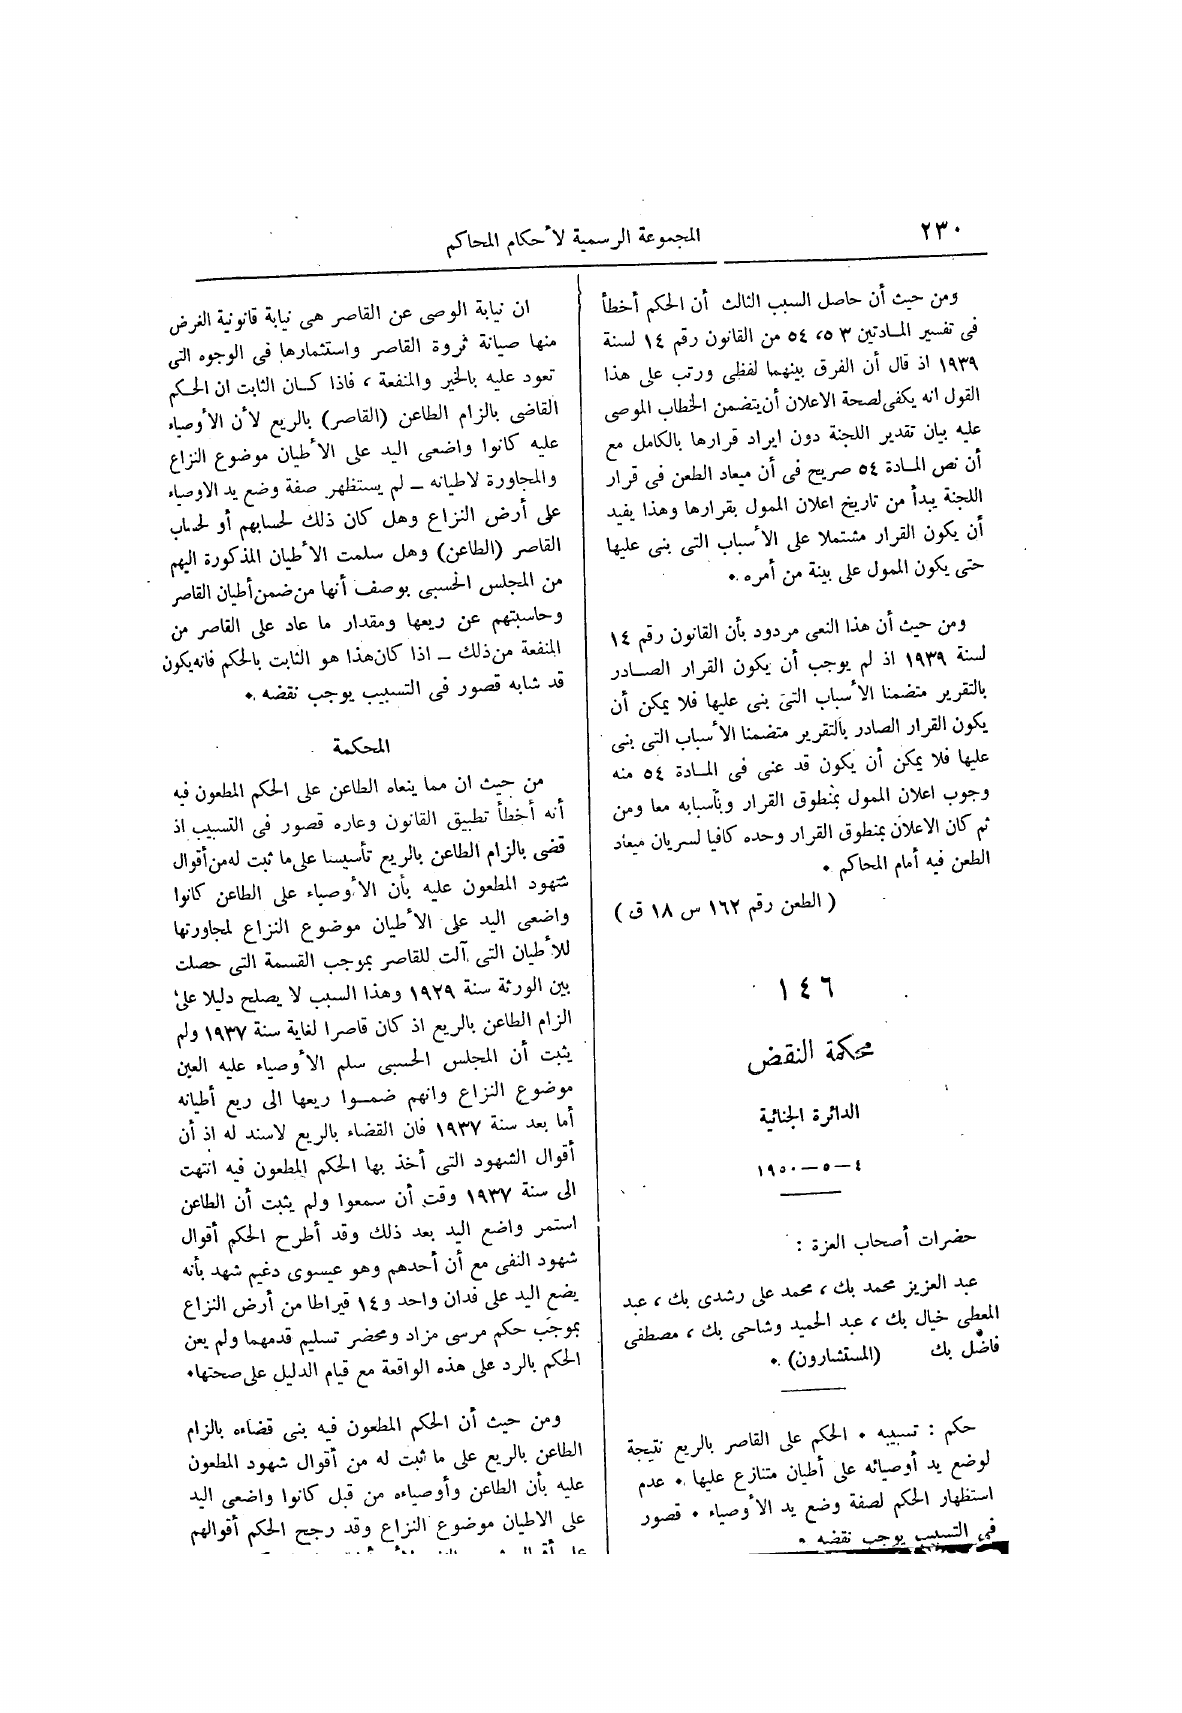 ٢٣٠
المجموعة الرسمية لأحكام المحاكم
ومن حيث أن حاصل السبب الثالث أن الحكم أخطأ
فى تفسير المادتين ٥٣، ٥٤ من القانون رقم ١٤ لسنة
١٩٣٩ اذ قال أن الفرق بينهما لفظى ورتب على هذا
القول انه يكفى لصحة الاعلان أن يتضمن الخطاب الموصى
عليه بيان تقدير اللجنة دون ايراد قرارها بالكامل مع
أن نص المادة ٥٤ صريح فى أن ميعاد الطعن فى قرار
اللجنة يبدأ من تاريخ اعلان الممول بقرارها وهذا يفيد
أن يكون القرار مشتملا على الأسباب التى بنى عليها
حتى يكون الممول على بينة من أمره ٠
ومن حيث أن هذا النعى مردود بأن القانون رقم ١٤
لسنة ١٩٣٩ اذ لم يوجب أن يكون القرار الصادر
بالتقرير متضمنا الأسباب التى بنى عليها فلا يمكن أن
يكون القرار الصادر بالتقرير متضمنا الأسباب التى بنى
عليها فلا يمكن أن يكون قد عنى فى المادة ٥٤ منه
وجوب اعلان الممول بمنطوق القرار وبأسبابه معا ومن
ثم كان الاعلان بمنطوق القرار وحده كافيا لسريان ميعاد
الطعن فيه أمام المحاكم ٠
( الطعن رقم ١٦٢ س ١٨ ق )
١٤٦
محكمة النقض
الدائرة الجنائية
٤ – ٥ – ١٩٥٠
حضرات أصحاب العزة :
عبد العزيز محمد بك ، محمد على رشدى بك ، عبد
المعطى خيال بك ، عبد الحميد وشاحى بك ، مصطفى
فاضل بك (المستشارون) ٠
حكم : تسبيبه ٠ الحكم على القاصر بالريع نتيجة
لوضع يد أوصيائه على أطيان متنازع عليها ٠ عدم
استظهار الحكم لصفة وضع يد الأوصياء ٠ قصور
فى التسبيب يوجب نقضه ٠
ان نيابة الوصى عن القاصر هى نيابة قانونية الغرض
منها صيانة ثروة القاصر واستثمارها فى الوجوه التى
تعود عليه بالخير والمنفعة ، فاذا كان الثابت ان الحكم
القاضى بالزام الطاعن (القاصر) بالريع لأن الأوصياء
عليه كانوا واضعى اليد على الأطيان موضوع النزاع
والمجاورة لاطيانه – لم يستظهر صفة وضع يد الاوصياء
على أرض النزاع وهل كان ذلك لحسابهم أو لحساب
القاصر (الطاعن) وهل سلمت الأطيان المذكورة اليهم
من المجلس الحسبى بوصف أنها من ضمن أطيان القاصر
وحاسبتهم عن ريعها ومقدار ما عاد على القاصر من
المنفعة من ذلك – اذا كان هذا هو الثابت بالحكم فانه يكون
قد شابه قصور فى التسبيب يوجب نقضه ٠
المحكمة
من حيث ان مما ينعاه الطاعن على الحكم المطعون فيه
أنه أخطأ تطبيق القانون وعاره قصور فى التسبيب اذ
قضى بالزام الطاعن بالريع تأسيسا على ما ثبت له من أقوال
شهود المطعون عليه بأن الأوصياء على الطاعن كانوا
واضعى اليد على الأطيان موضوع النزاع لمجاورتها
للأطيان التى آلت للقاصر بموجب القسمة التى حصلت
بين الورثة سنة ١٩٢٩ وهذا السبب لا يصلح دليلا على
الزام الطاعن بالريع اذ كان قاصرا لغاية سنة ١٩٣٧ ولم
يثبت أن المجلس الحسبى سلم الأوصياء عليه العين
موضوع النزاع وانهم ضموا ريعها الى ريع أطيانه
أما بعد سنة ١٩٣٧ فان القضاء بالريع لاسند له اذ أن
أقوال الشهود التى أخذ بها الحكم المطعون فيه انتهت
الى سنة ١٩٣٧ وقت أن سمعوا ولم يثبت أن الطاعن
استمر واضع اليد بعد ذلك وقد أطرح الحكم أقوال
شهود النفى مع أن أحدهم وهو عيسوى دغيم شهد بأنه
يضع اليد على فدان واحد و١٤ قيراطا من أرض النزاع
بموجب حكم مرسى مزاد ومحضر تسليم قدمهما ولم يعن
الحكم بالرد على هذه الواقعة مع قيام الدليل على صحتها٠
ومن حيث أن الحكم المطعون فيه بنى قضاءه بالزام
الطاعن بالريع على ما ثبت له من أقوال شهود المطعون
عليه بأن الطاعن وأوصياءه من قبل كانوا واضعى اليد
على الاطيان موضوع النزاع وقد رجح الحكم أقوالهم